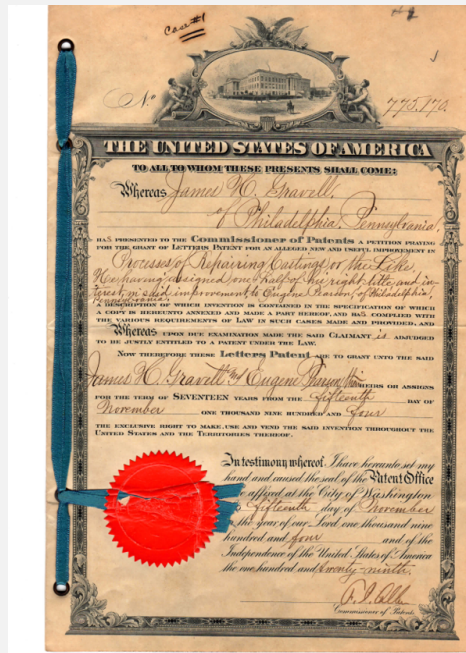 Case #1
# 2
No. 775,170.
THE UNITED STATES OF AMERICA
TO ALL TO WHOM THESE PRESENTS SHALL COME:
Whereas James H. Gravell,
of Philadelphia, Pennsylvania,
HAS PRESENTED TO THE Commissioner of Patents A PETITION PRAYING
FOR THE GRANT OF LETTERS PATENT FOR AN ALLEGED NEW AND USEFUL IMPROVEMENT IN
Processes of Repairing Castings or the Like,
He having assigned one-half of the right, title, and in-
terest in said improvement to Eugene Pearson, of Philadelphia,
Pennsylvania,
A DESCRIPTION OF WHICH INVENTION IS CONTAINED IN THE SPECIFICATION OF WHICH
A COPY IS HEREUNTO ANNEXED AND MADE A PART HEREOF, AND HAS COMPLIED WITH
THE VARIOUS REQUIREMENTS OF LAW IN SUCH CASES MADE AND PROVIDED, AND
Whereas UPON DUE EXAMINATION MADE THE SAID CLAIMANT is ADJUDGED
TO BE JUSTLY ENTITLED TO A PATENT UNDER THE LAW.
NOW THEREFORE THESE Letters Patent ARE TO GRANT UNTO THE SAID
James H. Gravell and Eugene Pearson, their HEIRS OR ASSIGNS
FOR THE TERM OF SEVENTEEN YEARS FROM THE fifteenth DAY OF
November ONE THOUSAND NINE HUNDRED AND four
THE EXCLUSIVE RIGHT TO MAKE, USE AND VEND THE SAID INVENTION THROUGHOUT THE
UNITED STATES AND THE TERRITORIES THEREOF.
In testimony whereof, I have hereunto set my
hand and caused the seal of the Patent Office
to be affixed at the City of Washington
this fifteenth day of November
in the year of our Lord one thousand nine
hundred and four and of the
Independence of the United States of America
the one hundred and twenty-ninth.
Commissioner of Patents.